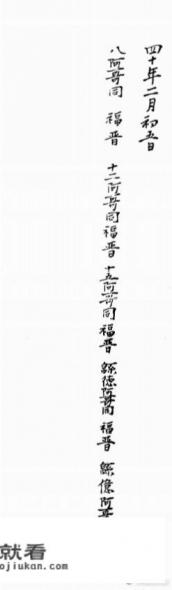 四十年二月初五日
八阿哥同 福晋 十二阿哥同福晋 十五阿哥同 福晋 綿德阿哥同 福晋 綿億阿哥
就看
ojiukan.com